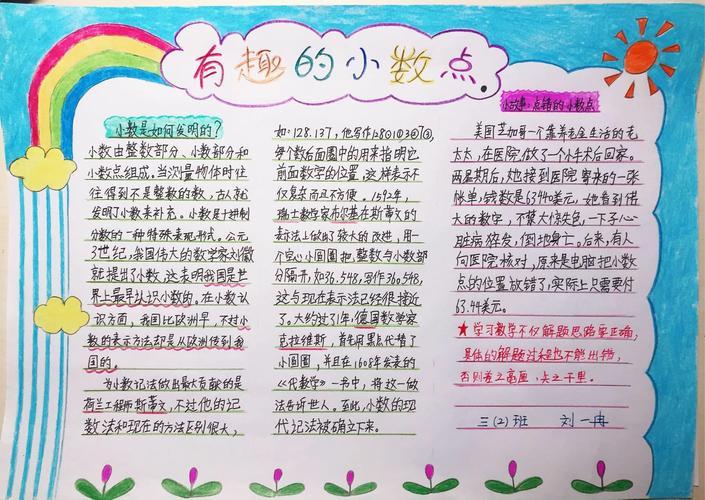 有趣的小数点
小数是如何发明的?
小数由整数部分、小数部分和
小数点组成。当测量物体时往
往得到不是整数的数，古人就
发明了小数来补充。小数是十进制
分数的一种特殊表现形式。公元
3世纪，我国伟大的数学家刘徽
就提出了小数。这表明我国是世
界上最早认识小数的，在小数认
识方面，我国比欧洲早，不过小
数的表示方法却是从欧洲传到我
国的。
为小数记法做出最大贡献的是
荷兰工程师斯蒂文，不过他的记
数法和现在的方法区别很大，
如：128.137，他写作128⓪1①3②7③，
每个数后面圈中的用来指明它
前面数字的位置，这样表示不
仅复杂而且不方便。1592年，
瑞士数学家布尔基在斯蒂文的
表示法上做出了较大的改进，用一
个空心小圆圈把整数与小数部
分隔开，如36.548，写作36。548，
这与现在表示法已经很接近
了。大约过了1年，德国数学家
克拉维斯，首先用黑点代替了
小圆圈，并且在1608年发表的
《代数学》一书中，将这一做
法告诉世人。至此，小数的现
代记法被确立下来。
小故事：点错的小数点
美国芝加哥一个靠养老金生活的老
太太，在医院做了一个小手术后回家。
两星期后，她接到医院寄来的一张
帐单，钱数是63440美元，她看到偌
大的数字，不禁大惊失色，一下子心
脏病猝发，倒地身亡。后来，有人
向医院核对，原来是电脑把小数
点的位置放错了，实际上只需要付
63.44美元。
★学习数学不仅解题思路要正确，
具体的解题过程也不能出错，
否则差之毫厘，失之千里。
三(2)班 刘一冉